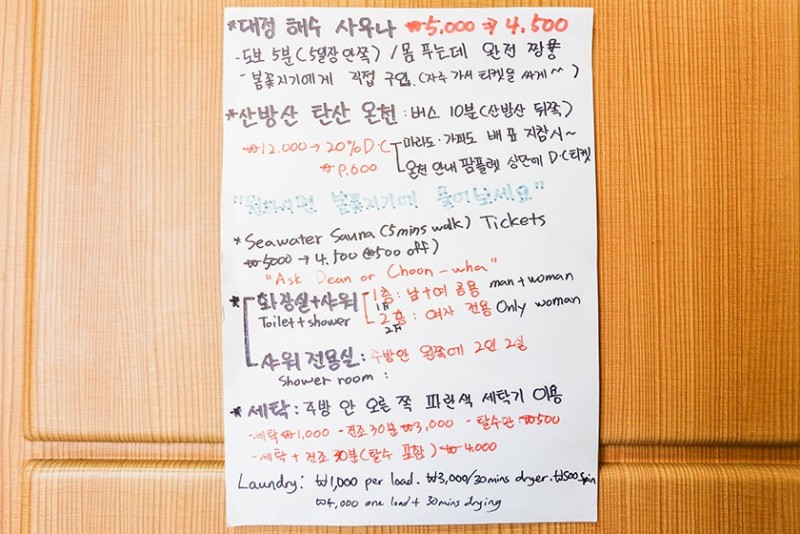 *대정 해수 사우나 ₩5.000 → 4.500
- 도보 5분(5일장 안쪽) / 몸 푸는데 완전 짱용
- 봄꽃지기에게 직접 구입.(자주 가서 티켓을 싸게~)
*산방산 탄산 온천 : 버스 10분(산방산 뒤쪽)
₩12.000 → 20% D.C
마라도·가파도 배 표 지참시~
₩9.600
온천 안내 팜플렛 상단에 D.C티켓
"원하시면 봄꽃지기에 물어보세요"
* Seawater Sauna (5mins walk) Tickets
₩5000 → 4.500 (₩500 off)
"Ask Dean or Choon-wha"
* 화장실+샤워
1층 : 남+여 공용 man+woman
1F
Toilet+shower
2층 : 여자 전용 Only woman
2F
샤워 전용실 : 주방안 왼쪽에 2인 2실
Shower room :
* 세탁 : 주방 안 오른 쪽 파란색 세탁기 이용
- 세탁 ₩1,000 - 건조 30분 ₩3,000 - 탈수만 ₩500
- 세탁 + 건조 30분(탈수 포함) ₩4.000
Laundry: ₩1,000 per load. ₩3,000/30mins dryer. ₩500 spin
₩4,000 one load + 30mins drying